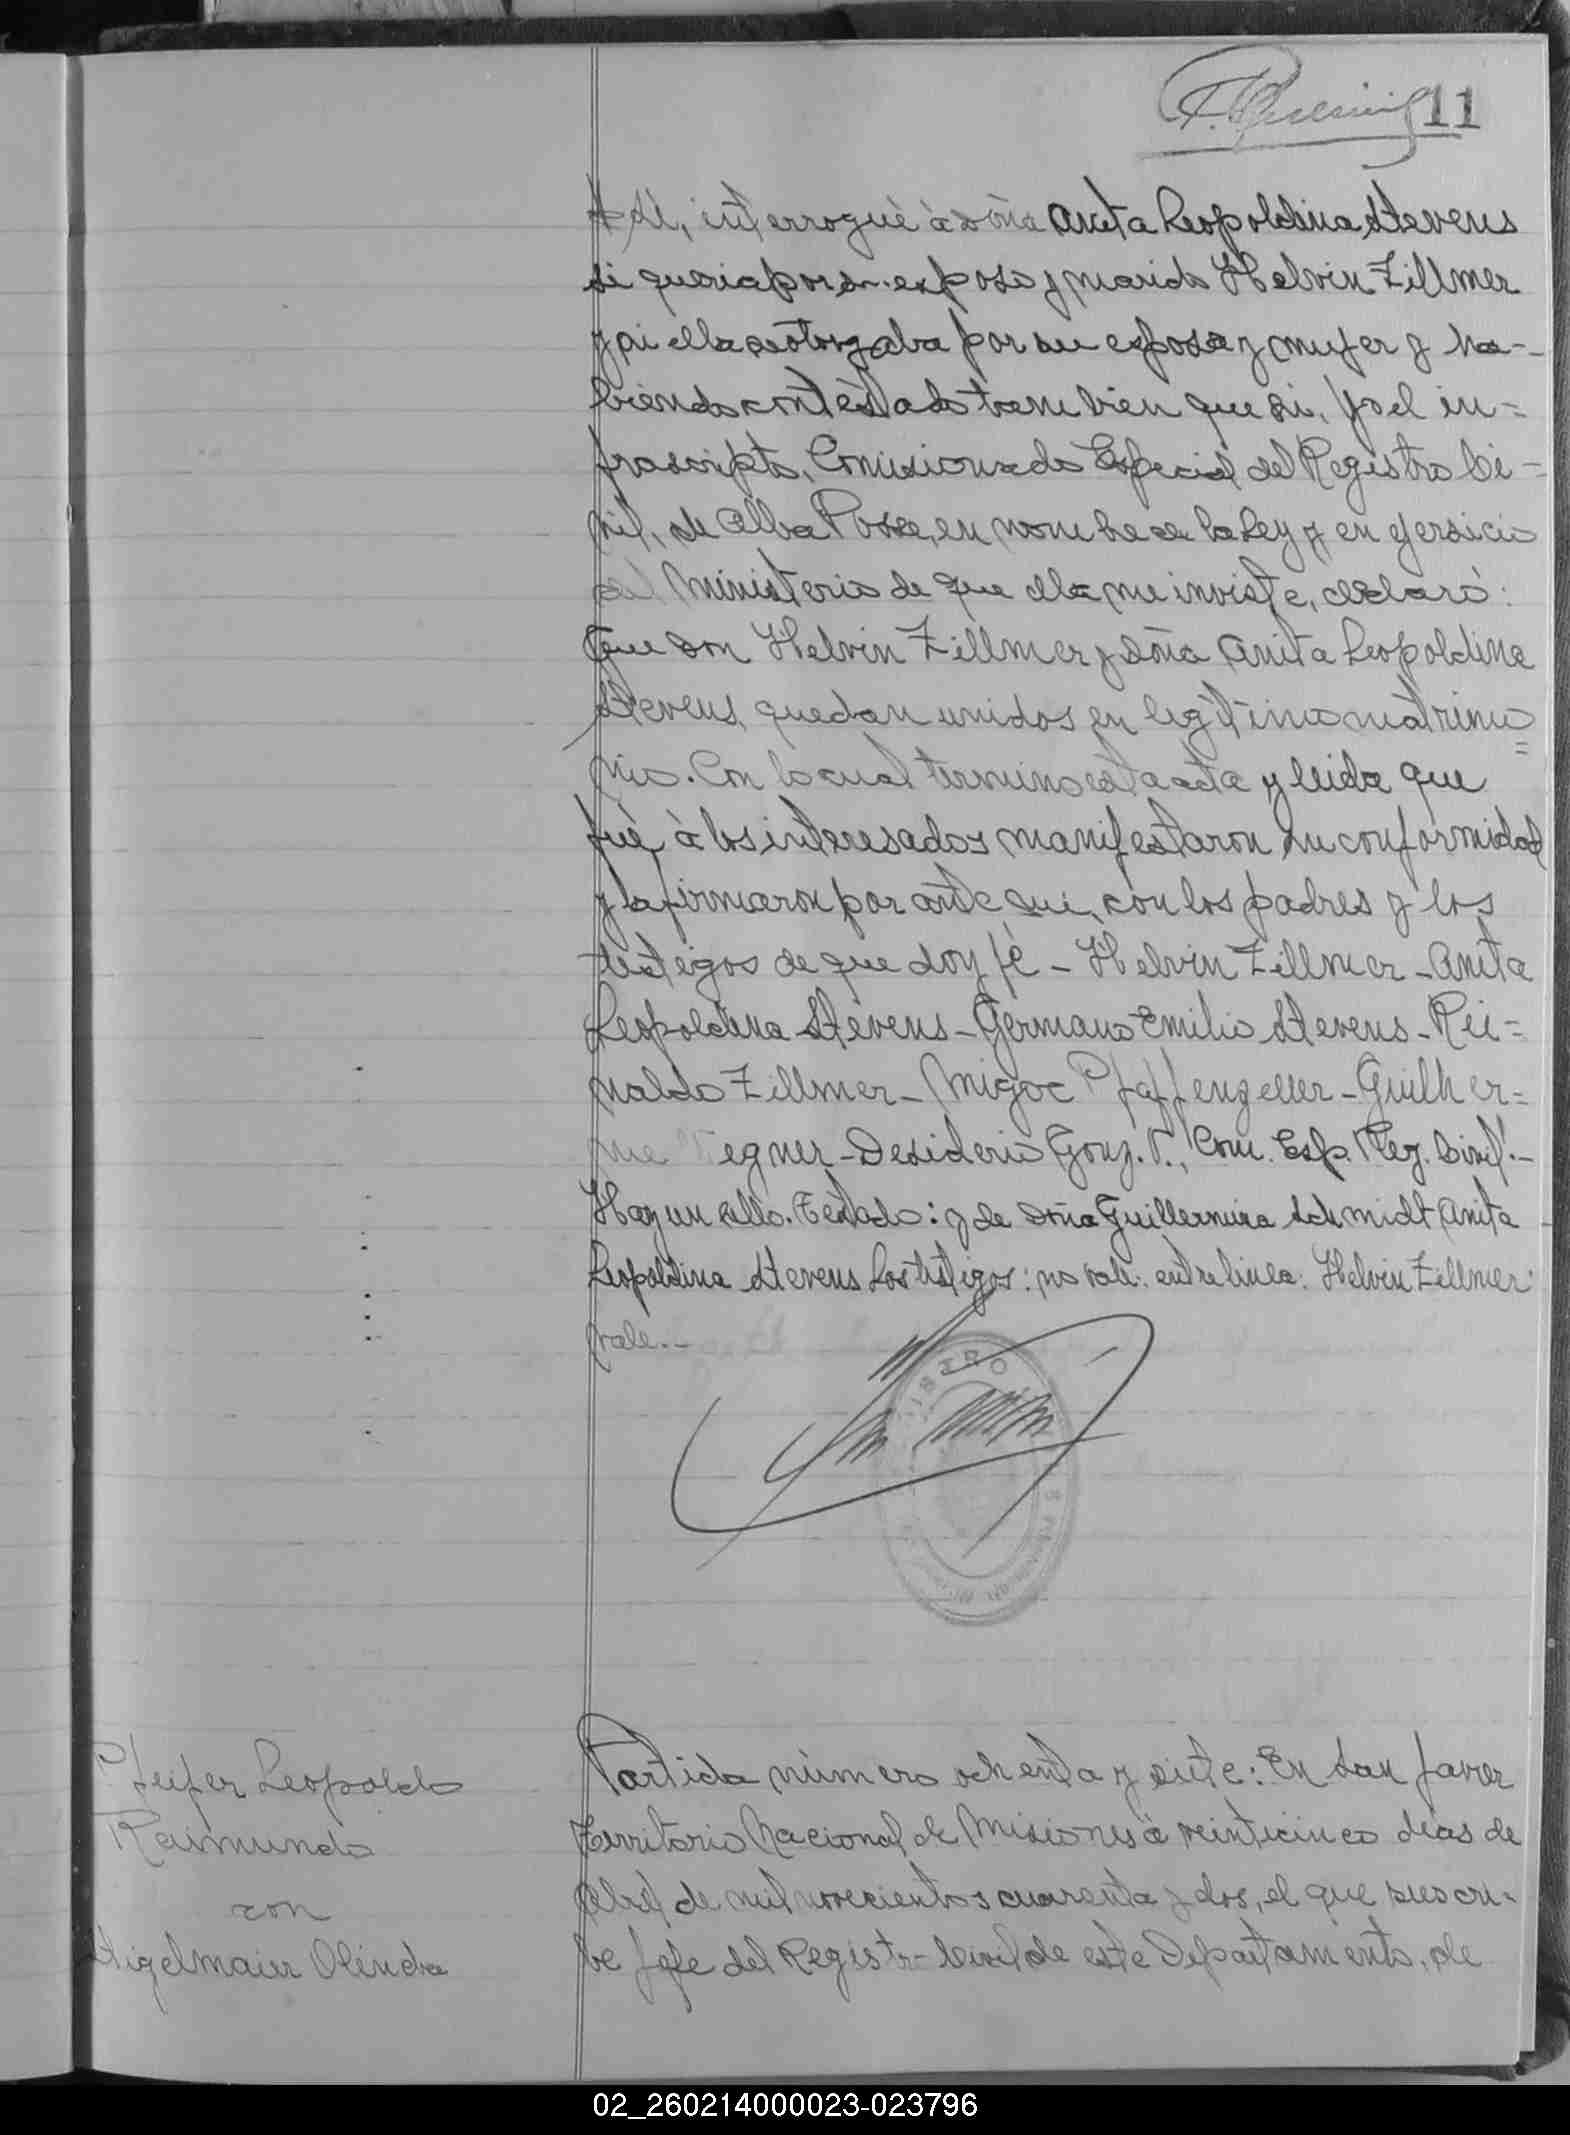 11
Sí, interrogué à doña Anita Leopoldina Stevens
si queria por su esposo y marido Helvin Zillmer
y si ella se otorgaba por su esposa y mujer y ha-
biendo contestado tambien que si, yo el in=
frascripto, Comisionado Especial del Registro Ci=
vil, de Alba Posse, en nombre de la Ley y en ejersicio
del Ministerio de que ella me inviste, declaró:
Que don Helvin Zillmer y doña Anita Leopoldina
Stevens, quedan unidos en legítimo matrimo=
nio. Con lo cual termino esta acta y leida que
fué, à los interesados manifestaron su conformidad
y la firmaron por ante mi, con los padres y los
testigos de que doy fé - Helvin Zillmer - Anita
Leopoldina Stevens - Germano Emilio Stevens - Rei=
naldo Zillmer - Pfaffenzeller - Guilher=
me egner - Desiderio Gonz. V., Com. Esp. Reg. Civil.-
Hay un sello. Testado: y de doña Guillermina Schmidt Anita
Leopoldina Stevens Los testigos: no vale: entre linea: Helvin Zillmer:
vale.-
Pfeifer Leopoldo
Raimundo
con
Higelmaier Olinda
Partida número ochenta y siete: En San Javier
Territorio Nacional de Misiones à veinticinco dias de
Abril de mil novecientos cuarenta y dos, el que suscri=
be Jefe del Registro Civil de este Departamento, de
02_260214000023-023796